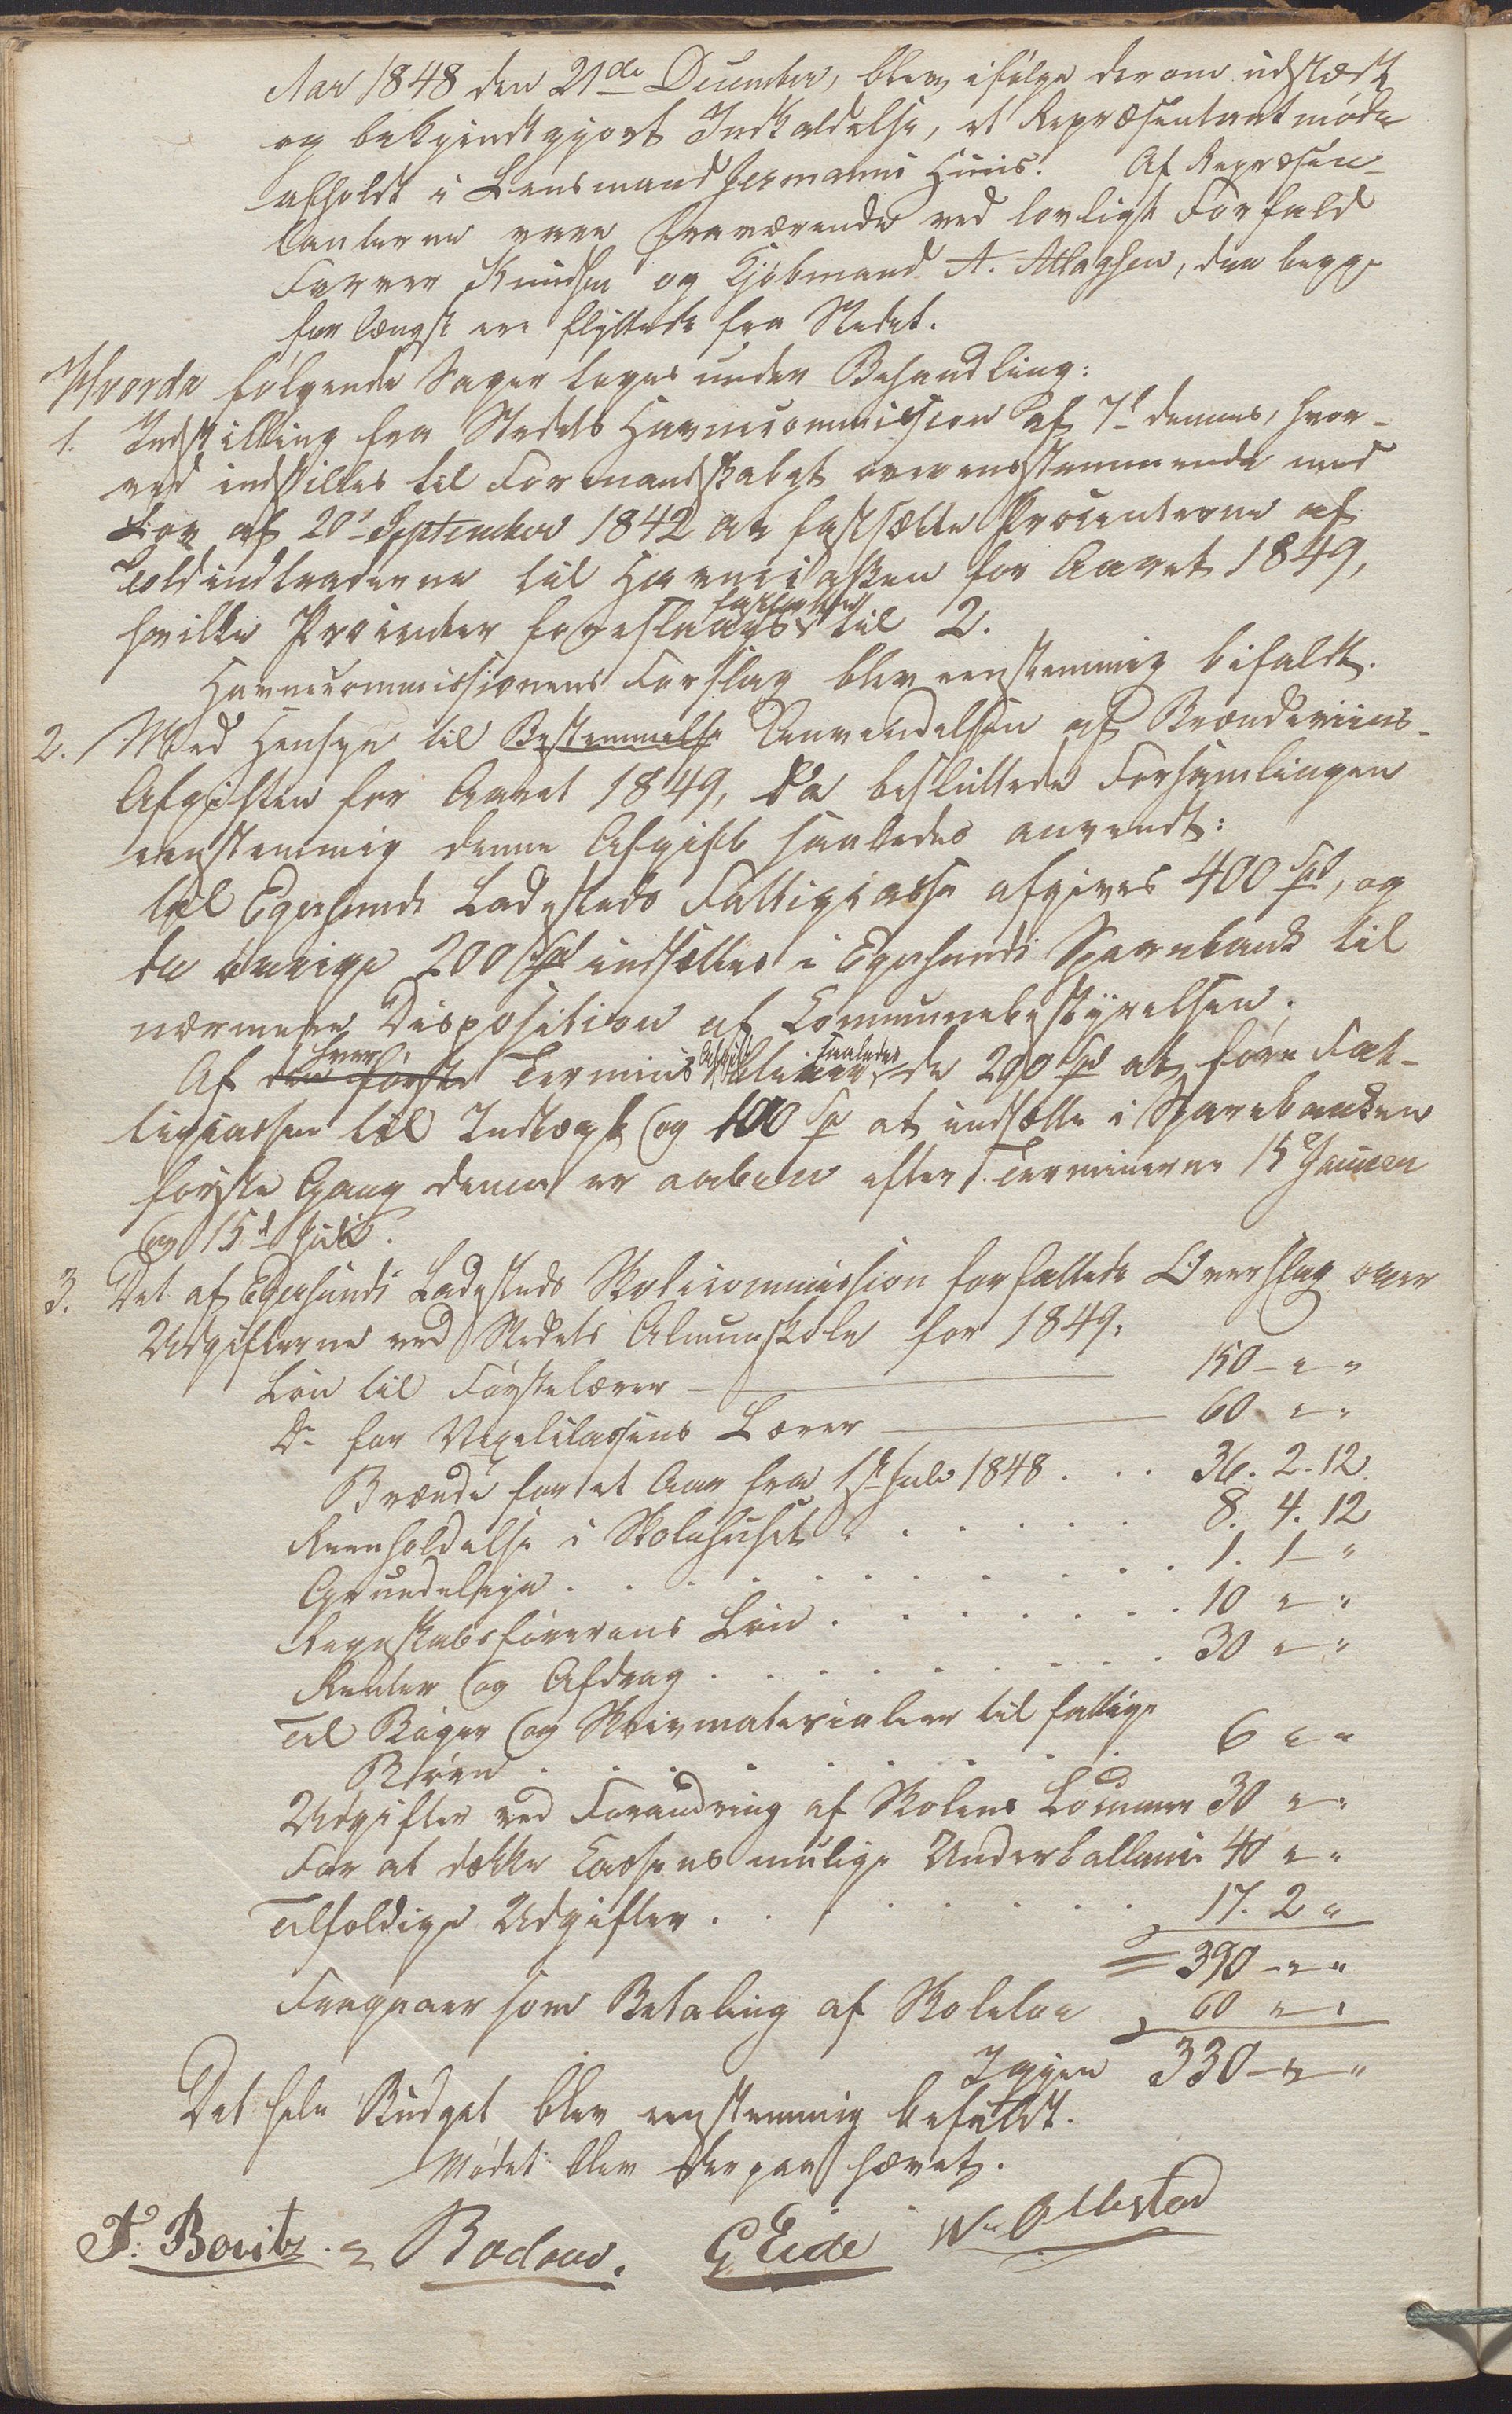 Aar 1848 den 21de December, blev ifølge derom udstædt
og bekjendtgjort Indkaldelse, et Repræsentantmøde
afholdt i Lensmand Jermanns Huus. Af Repræsen-
tanterne vare fraværende ved lovligt Forfald
Farver Knudsen og Kjøbmand A. , der begge
for længst ere flyttede fra Stedet.
Hvorda følgende Sager toges under Behandling:
1. Indstilling fra Stedets Havnecommission af 7d dennes, hvor-
ved indstilles til Formandskabet overensstemmende med
Lov af 20d September 1842 at fastsætte Procenterne af
Toldindtraderne til Havnecassen for Aaret 1849,
hvilke Procenter foreslaaes fastsatte til 2.
Havnecommissionens Forslag blev eenstemmig bifaldt.
2. Med Hensyn til Bestemmelse Anvendelsen af Brændeviins-
Afgiften for Aaret 1849, da besluttede Forsamlingen
eenstemmig denne Afgift saaledes anvendt:
til Egersunds Ladesteds Fattigcasse afgives 400 Spd, og
de øvrige 200 Spd indsættes i Egersunds Sparebank til
nærmere Disposition af Communebestyrelsen.
Af den første hver Termins Afgift bliver saaledes de 200 Spd at føre Fat-
tigcassen til Indtægt og 100 Sp at indsætte i Sparebanken
første Gang denne er aaben efter Terminerne 15d Januar
og 15d Juli.
3. Det af Egersunds Ladesteds Skolecommission forfattede Overslag over
Udgifterne ved Stedets Almueskole for 1849:
Løn til Førstelærer 150 - " - "
Do for Vexelclassens Lærer 60 " - "
Brænde for et Aar fra 1st Juli 1848 . . . 36. 2. 12.
Reenholdelse i Skolehuset . . . . . . 8. 4. 12
Grundeleje . . . . . . . . . . 1. 1 - "
Regnskabsførerens Løn . . . . . . . 10 " - "
Renter og Afdrag . . . . . . . . 30 " - "
Til Bøger og Skrivmaterialier til fattige
Børn . . . . . . . . 6 " "
Udgifter ved Forandring af Skolens Locummer 30 " - "
For at dække Cassens mulige Underballance 40 " - "
Tilfældige Udgifter . . . . . . . 17. 2 "
= 390 - " - "
Fragaaer som Betaling af Skoleløn 60 " - "
Igjen 330 - " - "
Det hele Budget blev eenstemmig bifaldt.
Mødet blev derpaa hævet.
F. Bovitz. Rodow. G Eide Wm Ollestad